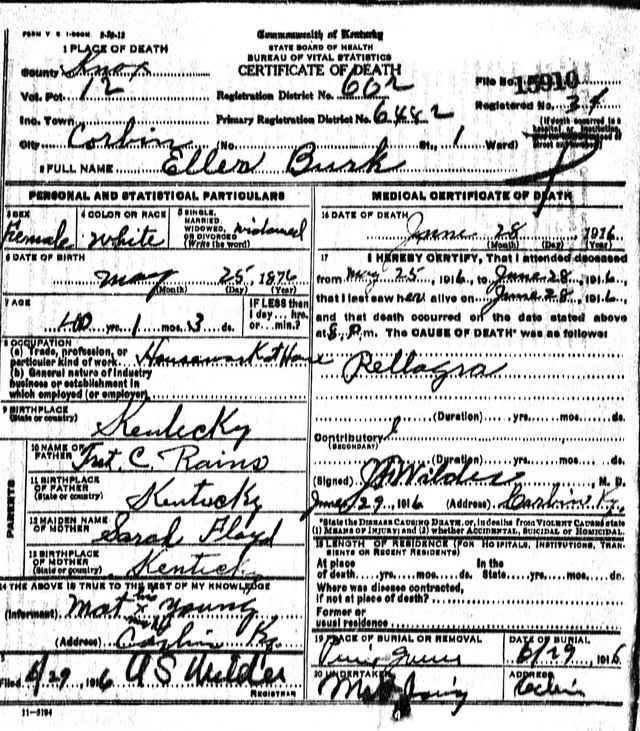 FORM V S 1-500M 2-20-12
Commonwealth of Kentucky
STATE BOARD OF HEALTH
BUREAU OF VITAL STATISTICS
CERTIFICATE OF DEATH
1 PLACE OF DEATH
County Knox
Vot. Pct 12
Registration District No. 602
File No. 15910
Inc. Town
Primary Registration District No. 6482
Registered No. 34
City Corbin (No. St., 1 Ward)
(If death occurred in a hospital or institution,
2 FULL NAME Ellen Burk
PERSONAL AND STATISTICAL PARTICULARS
3 SEX Female
4 COLOR OR RACE White
5 SINGLE, MARRIED, WIDOWED, OR DIVORCED (Write the word) widowed
6 DATE OF BIRTH
May 25, 1876
(Month) (Day) (Year)
7 AGE
40 yrs. 1 mos. 3 ds.
IF LESS then 1 day... hrs. or... min.?
8 OCCUPATION
(a) Trade, profession, or particular kind of work Housework at Home
(b) General nature of industry
business or establishment in
which employed (or employer)
9 BIRTHPLACE
(State or country) Kentucky
PARENTS
10 NAME OF FATHER C. Rains
11 BIRTHPLACE OF FATHER (State or country) Kentucky
12 MAIDEN NAME OF MOTHER Sarah Floyd
13 BIRTHPLACE OF MOTHER (State or country) Kentucky
14 THE ABOVE IS TRUE TO THE BEST OF MY KNOWLEDGE
(Informant) Mat x Young
(Address) Corbin Ky.
Filed 6/29 1916 A S Wilder
REGISTRAR
11-3184
MEDICAL CERTIFICATE OF DEATH
16 DATE OF DEATH
June 28 1916
(Month) (Day) (Year)
17 I HEREBY CERTIFY, That I attended deceased
from May 25, 1916, to June 28, 1916,
that I last saw her alive on June 28, 1916,
and that death occurred on the date stated above
at 8 P.m. The CAUSE OF DEATH* was as follows:
Pellagra
(Duration) yrs. mos. ds.
Contributory
(SECONDARY)
(Duration) yrs. mos. ds.
(Signed) Wilder M. D.
June 29, 1916 (Address) Corbin Ky.
*State the DISEASE CAUSING DEATH, or, in deaths from VIOLENT CAUSES state
(1) MEANS OF INJURY; and (2) whether ACCIDENTAL, SUICIDAL or HOMICIDAL.
18 LENGTH OF RESIDENCE (FOR HOSPITALS, INSTITUTIONS, TRANSIENTS OR RECENT RESIDENTS)
At place of death yrs. mos. ds. In the State yrs. mos. ds.
Where was disease contracted,
if not at place of death?
Former or
usual residence
19 PLACE OF BURIAL OR REMOVAL
DATE OF BURIAL
6/29 1916
20 UNDERTAKER
ADDRESS
Corbin